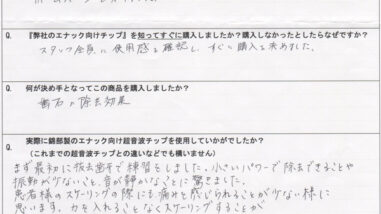 Q. 『弊社のエナック向けチップ』を知ってすぐに購入しましたか?購入しなかったとしたらなぜですか?
スタッフ全員に使用感を確認し、すぐに購入を決めました。
Q. 何が決め手となってこの商品を購入しましたか?
歯石の除去効果
Q. 実際に錦部製のエナック向け超音波チップを使用していかがでしたか?
(これまでの超音波チップとの違いなどでも構いません)
まず最初に抜去歯牙で練習をしました。小さいパワーで除去できることや
振動が少ないこと、音が静かなことに驚きました。
患者様のスケーリングの際にも痛みを感じられることが少ない様に
思います。力を入れることなくスケーリングすることが